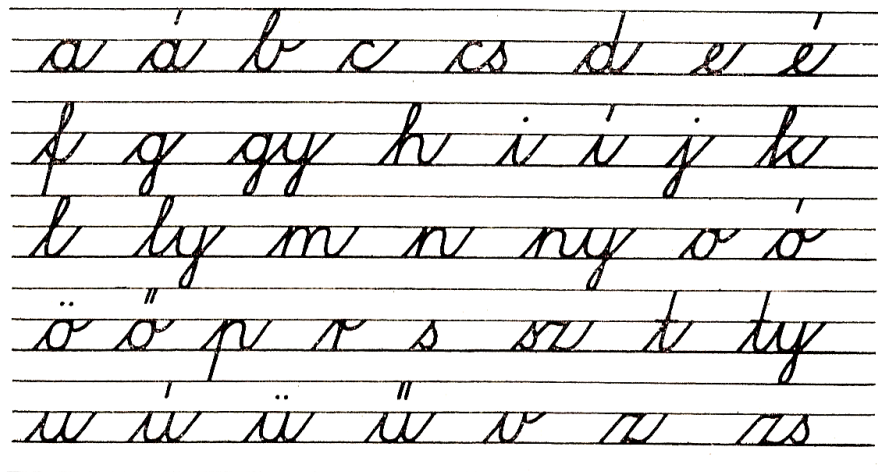 a á b c cs d e é
f g gy h i í j k
l ly m n ny o ó
ö ő p r s sz t ty
u ú ü ű v z zs